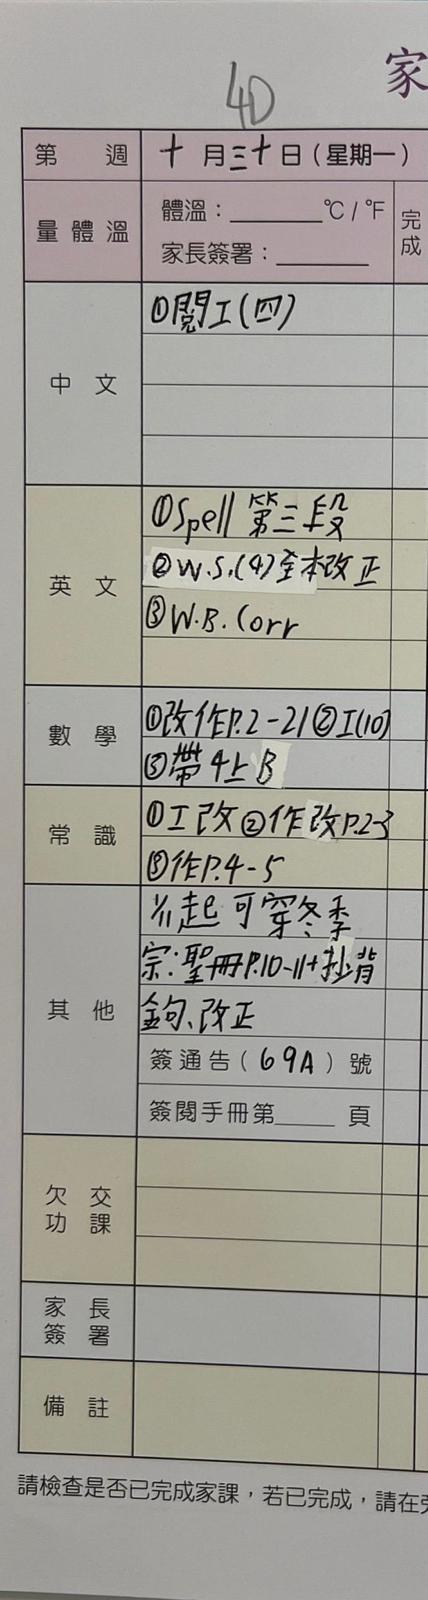 家
4D
第 週 十月三十日(星期一)
量體溫 體溫:______℃/℉ 完成
家長簽署:______
中文 ①閱工(四)
英文 ①Spell 第三段
②W.S.(4)全本改正
③W.B. Corr
數學 ①改作P.2-21②工(10)
③帶4上B
常識 ①工改②作改P.2-3
③作P.4-5
其他 1/11起可穿冬季
宗:聖冊P.10-11+抄背
金句、改正
簽通告(69A)號
簽閱手冊第____頁
欠交功課
家長簽署
備註
請檢查是否已完成家課,若已完成,請在